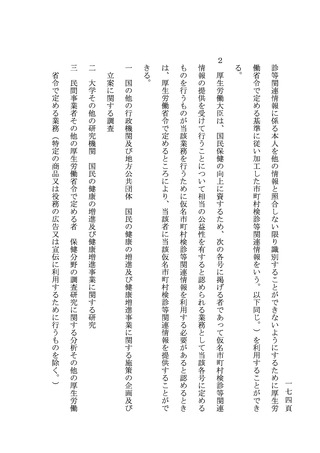 一七四頁
診等関連情報に係る本人を他の情報と照合しない限り識別することができないようにするために厚生労
働省令で定める基準に従い加工した市町村検診等関連情報をいう。以下同じ。）を利用することができ
る。
２　厚生労働大臣は、国民保健の向上に資するため、次の各号に掲げる者であって仮名市町村検診等関連
情報の提供を受けて行うことについて相当の公益性を有すると認められる業務として当該各号に定める
ものを行うものが当該業務を行うために仮名市町村検診等関連情報を利用する必要があると認めるとき
は、厚生労働省令で定めるところにより、当該者に当該仮名市町村検診等関連情報を提供することがで
きる。
一　国の他の行政機関及び地方公共団体　国民の健康の増進及び健康増進事業に関する施策の企画及び
立案に関する調査
二　大学その他の研究機関　国民の健康の増進及び健康増進事業に関する研究
三　民間事業者その他の厚生労働省令で定める者　保健分野の調査研究に関する分析その他の厚生労働
省令で定める業務（特定の商品又は役務の広告又は宣伝に利用するために行うものを除く。）